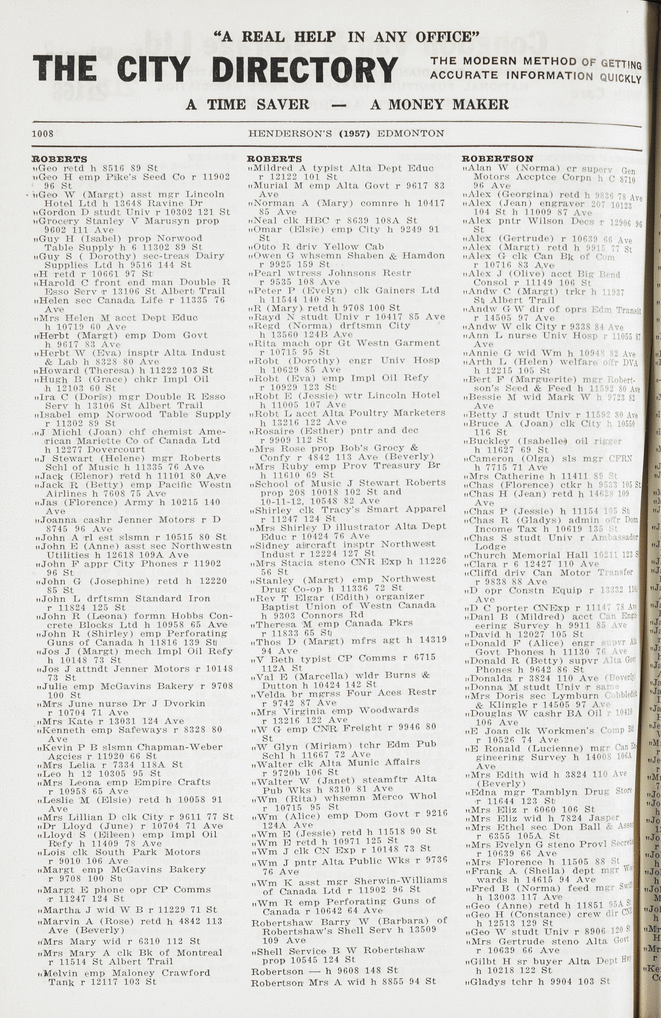 "A REAL HELP IN ANY OFFICE"
THE CITY DIRECTORY
THE MODERN METHOD OF GETTING
ACCURATE INFORMATION QUICKLY
A TIME SAVER — A MONEY MAKER
1008
HENDERSON'S (1957) EDMONTON
ROBERTS
„Geo retd h 8516 89 St
„Geo H emp Pike's Seed Co r 11902
96 St
„Geo W (Margt) asst mgr Lincoln
Hotel Ltd h 13648 Ravine Dr
„Gordon D studt Univ r 10302 121 St
„Grocery Stanley V Marusyn prop
9602 111 Ave
„Guy H (Isabel) prop Norwood
Table Supply h 6 11302 89 St
„Guy S ( Dorothy) sec-treas Dairy
Supplies Ltd h 9516 144 St
„H retd r 10661 97 St
„Harold C front end man Double R
Esso Serv r 13106 St Albert Trail
„Helen sec Canada Life r 11335 76
Ave
„Mrs Helen M acct Dept Educ
h 10719 60 Ave
„Herbt (Margt) emp Dom Govt
h 9617 83 Ave
„Herbt W (Eva) insptr Alta Indust
& Lab h 8328 80 Ave
„Howard (Theresa) h 11222 103 St
„Hugh B (Grace) chkr Impl Oil
h 12103 60 St
„Ira C (Doris) mgr Double R Esso
Serv h 13106 St Albert Trail
„Isabel emp Norwood Table Supply
r 11302 89 St
„J Michl (Joan) chf chemist Ame-
rican Mariette Co of Canada Ltd
h 12277 Dovercourt
„J Stewart (Helene) mgr Roberts
Schl of Music h 11335 76 Ave
„Jack (Elenor) retd h 11101 80 Ave
„Jack R (Betty) emp Pacific Westn
Airlines h 7608 75 Ave
„Jas (Florence) Army h 10215 140
Ave
„Joanna cashr Jenner Motors r D
8745 96 Ave
„John A rl est slsmn r 10515 80 St
„John E (Anne) asst sec Northwestn
Utilities h 12618 109A Ave
„John F appr City Phones r 11902
96 St
„John G (Josephine) retd h 12220
85 St
„John L drftsmn Standard Iron
r 11824 125 St
„John R (Leona) formn Hobbs Con-
crete Blocks Ltd h 10958 65 Ave
„John R (Shirley) emp Perforating
Guns of Canada h 11816 139 St
„Jos J (Margt) mech Impl Oil Refy
h 10148 73 St
„Jos J attndt Jenner Motors r 10148
73 St
„Julie emp McGavins Bakery r 9708
100 St
„Mrs June nurse Dr J Dvorkin
r 10704 71 Ave
„Mrs Kate r 13031 124 Ave
„Kenneth emp Safeways r 8328 80
Ave
„Kevin P B slsmn Chapman-Weber
Agcies r 11920 66 St
„Mrs Lelia r 7334 118A St
„Leo h 12 10305 95 St
„Mrs Leona emp Empire Crafts
r 10958 65 Ave
„Leslie M (Elsie) retd h 10058 91
Ave
„Mrs Lillian D clk City r 9611 77 St
„Dr Lloyd (June) r 10704 71 Ave
„Lloyd S (Eileen) emp Impl Oil
Refy h 11409 78 Ave
„Lois clk South Park Motors
r 9010 106 Ave
„Margt emp McGavins Bakery
r 9708 100 St
„Margt E phone opr CP Comms
r 11247 124 St
„Martha J wid W B r 11229 71 St
„Marvin A (Rose) retd h 4842 113
Ave (Beverly)
„Mrs Mary wid r 6310 112 St
„Mrs Mary A clk Bk of Montreal
r 11514 St Albert Trail
„Melvin emp Maloney Crawford
Tank r 12117 103 St
ROBERTS
„Mildred A typist Alta Dept Educ
r 12122 101 St
„Murial M emp Alta Govt r 9617 83
Ave
„Norman A (Mary) comnre h 10417
85 Ave
„Neal clk HBC r 8639 108A St
„Omar (Elsie) emp City h 9249 91
St
„Otto R driv Yellow Cab
„Owen G whsemn Shaben & Hamdon
r 9925 159 St
„Pearl wtress Johnsons Restr
r 9535 108 Ave
„Peter P (Evelyn) clk Gainers Ltd
h 11544 140 St
„R (Mary) retd h 9708 100 St
„Rayd N studt Univ r 10417 85 Ave
„Regd (Norma) drftsmn City
h 13560 124B Ave
„Rita mach opr Gt Westn Garment
r 10715 95 St
„Robt (Dorothy) engr Univ Hosp
h 10629 85 Ave
„Robt (Eva) emp Impl Oil Refy
r 10929 123 St
„Robt E (Jessie) wtr Lincoln Hotel
h 11005 107 Ave
„Robt L acct Alta Poultry Marketers
h 13216 122 Ave
„Rosaire (Esther) pntr and dec
r 9909 112 St
„Mrs Rose prop Bob's Grocy &
Confy r 4842 113 Ave (Beverly)
„Mrs Ruby emp Prov Treasury Br
h 11610 69 St
„School of Music J Stewart Roberts
prop 208 10018 102 St and
10-11-12, 10548 82 Ave
„Shirley clk Tracy's Smart Apparel
r 11247 124 St
„Mrs Shirley D illustrator Alta Dept
Educ r 10424 76 Ave
„Sidney aircraft insptr Northwest
Indust r 12224 127 St
„Mrs Stacia steno CNR Exp h 11226
56 St
„Stanley (Margt) emp Northwest
Drug Co-op h 11336 72 St
„Rev T Elgar (Edith) organizer
Baptist Union of Westn Canada
h 9303 Connors Rd
„Theresa M emp Canada Pkrs
r 11833 65 St
„Thos D (Margt) mfrs agt h 14319
94 Ave
„V Beth typist CP Comms r 6715
112A St
„Val E (Marcella) wldr Burns &
Dutton h 10424 142 St
„Velda br mgrss Four Aces Restr
r 9742 87 Ave
„Mrs Virginia emp Woodwards
r 13216 122 Ave
„W G emp CNR Freight r 9946 80
St
„W Glyn (Miriam) tchr Edm Pub
Schl h 11667 72 Ave
„Walter clk Alta Munic Affairs
r 9720b 106 St
„Walter W (Janet) steamftr Alta
Pub Wks h 8310 81 Ave
„Wm (Rita) whsemn Merco Whol
r 10715 95 St
„Wm (Alice) emp Dom Govt r 9216
124A Ave
„Wm E (Jessie) retd h 11518 90 St
„Wm E retd h 10971 125 St
„Wm J clk CN Exp r 10148 73 St
„Wm J pntr Alta Public Wks r 9736
76 Ave
„Wm K asst mgr Sherwin-Williams
of Canada Ltd r 11902 96 St
„Wm R emp Perforating Guns of
Canada r 10642 64 Ave
Robertshaw Barry W (Barbara) of
Robertshaw's Shell Serv h 13509
109 Ave
„Shell Service B W Robertshaw
prop 10545 124 St
Robertson — h 9608 148 St
Robertson Mrs A wid h 8855 94 St
ROBERTSON
„Alan W (Norma) cr superv Gen
Motors Accptce Corpn h C 8710
96 Ave
„Alex (Georgina) retd h 9836 78 Ave
„Alex (Jean) engraver 207 10123
104 St h 11009 87 Ave
„Alex pntr Wilson Decs r 12906 96
St
„Alex (Gertrude) r 10639 66 Ave
„Alex (Margt) retd h 9915 77 St
„Alex G clk Can Bk of Com
r 10716 83 Ave
„Alex J (Olive) acct Big Bend
Consol r 11149 106 St
„Andw C (Margt) trkr h 11937
St Albert Trail
„Andw G W dir of oprs Edm Transit
r 14505 97 Ave
„Andw W clk City r 9338 84 Ave
„Ann L nurse Univ Hosp r 11055
Ave
„Annie G wid Wm h 10948 82 Ave
„Arth L (Helen) welfare offr DVA
h 12215 105 St
„Bert F (Marguerite) mgr Robert-
son's Seed & Feed h 11592 80 Ave
„Bessie M wid Mark W h 9723
Ave
„Betty J studt Univ r 11592 80 Ave
„Bruce A (Joan) clk City h 10550
116 St
„Buckley (Isabelle) oil rigger
h 11627 69 St
„Cameron (Olga) sls mgr CFRN
h 7715 71 Ave
„Mrs Catherine h 11411 89 St
„Chas (Florence) ctkr h 9533 105 St
„Chas H (Jean) retd h 14628 109
Ave
„Chas P (Jessie) h 11154 105 St
„Chas R (Gladys) admin offr Dom
Income Tax h 10619 135 St
„Chas S studt Univ r Ambassador
Lodge
„Church Memorial Hall 10211 123 S
„Clara r 6 12427 110 Ave
„Cliffd driv Can Motor Transfer
r 9838 88 Ave
„D opr Constn Equip r 13332
Ave
„D C porter CNExp r 11147 78 Av
„Danl B (Mildred) acct Can Eng
eering Survey h 9911 85 Ave
„David h 12027 105 St
„Donald F (Alice) engr supvr
Govt Phones h 11130 76 Ave
„Donald R (Betty) supvr Alta Gov
Phones h 9642 86 St
„Donalda r 3824 110 Ave (Beverly
„Donna M studt Univ r same
„Mrs Doris sec Lymburn
& Klingle r 14505 97 Ave
„Douglas W cashr BA Oil r 10418
106 Ave
„E Joan clk Workmen's Comp
r 10526 74 Ave
„E Ronald (Lucienne) mgr Can
gineering Survey h 14008 106A
Ave
„Mrs Edith wid h 3824 110 Ave
(Beverly)
„Edna mgr Tamblyn Drug Store
r 11644 123 St
„Mrs Eliz r 6060 106 St
„Mrs Eliz wid h 7824 Jasper
„Mrs Ethel sec Don Ball & Ass
r 6355 105A St
„Mrs Evelyn G steno Provl Secret
r 10639 66 Ave
„Mrs Florence h 11505 88 St
„Frank A (Sheila) dept mgr Wo
wards h 14615 94 Ave
„Fred B (Norma) feed mgr Swif
h 13003 117 Ave
„Geo (Anne) retd h 11851 95A S
„Geo H (Constance) crew dir
h 12513 129 St
„Geo W studt Univ r 8906 120 S
„Mrs Gertrude steno Alta Govt
r 10639 66 Ave
„Gilbt H sr buyer Alta Dept
h 10218 122 St
„Gladys tchr h 9904 103 St